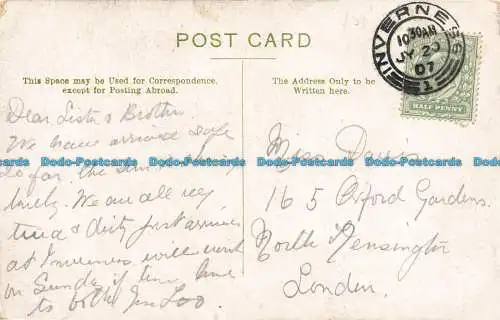 POST CARD
INVERNESS
1030AM
JY 20
07
1
HALF PENNY
This Space may be Used for Correspondence,
except for Posting Abroad.
The Address Only to be
Written here.
Dear Sister & Brother
We have arrived safe
so far the
We are all very
tired & dirty just arrived
at Inverness will write
on Sunday if time
to both
Miss Davis
165 Oxford Gardens.
North Kensington
London.
Dodo-Postcards Dodo-Postcards Dodo-Postcards Dodo-Postcards Dodo-Postcards